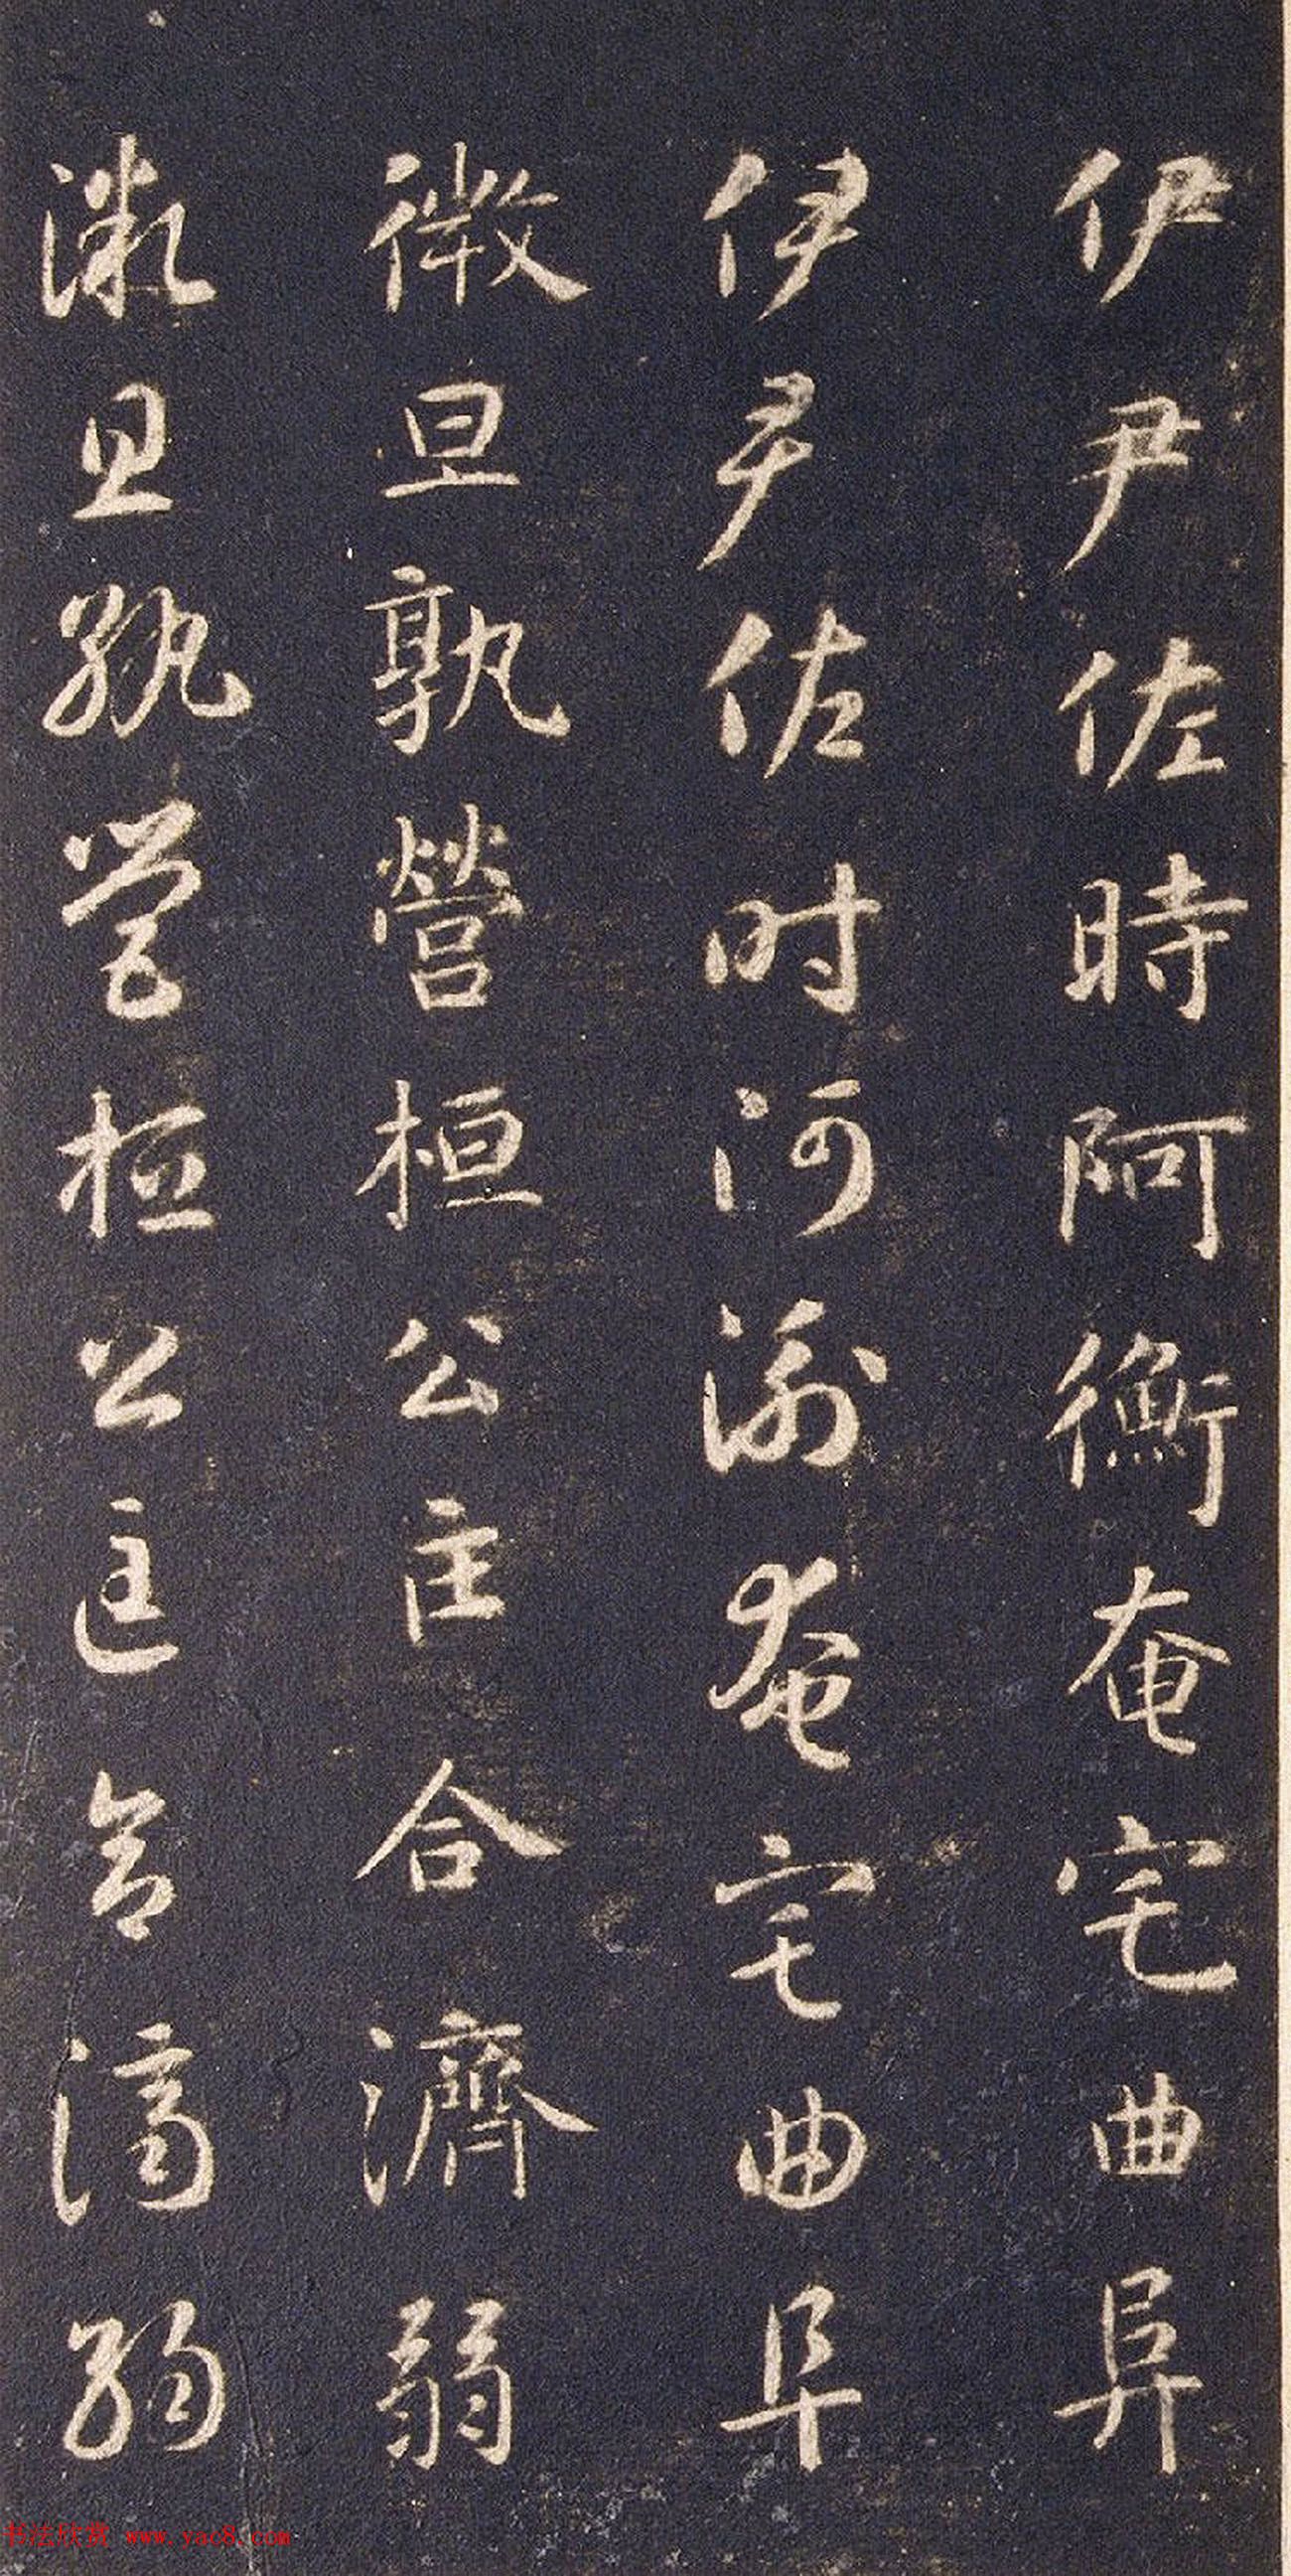 伊尹佐時阿衡奄宅曲阜
伊尹佐时阿衡奄宅曲阜
微旦孰營桓公匡合濟弱
微旦孰營桓公匡合濟弱
书法欣赏 www.yac8.com